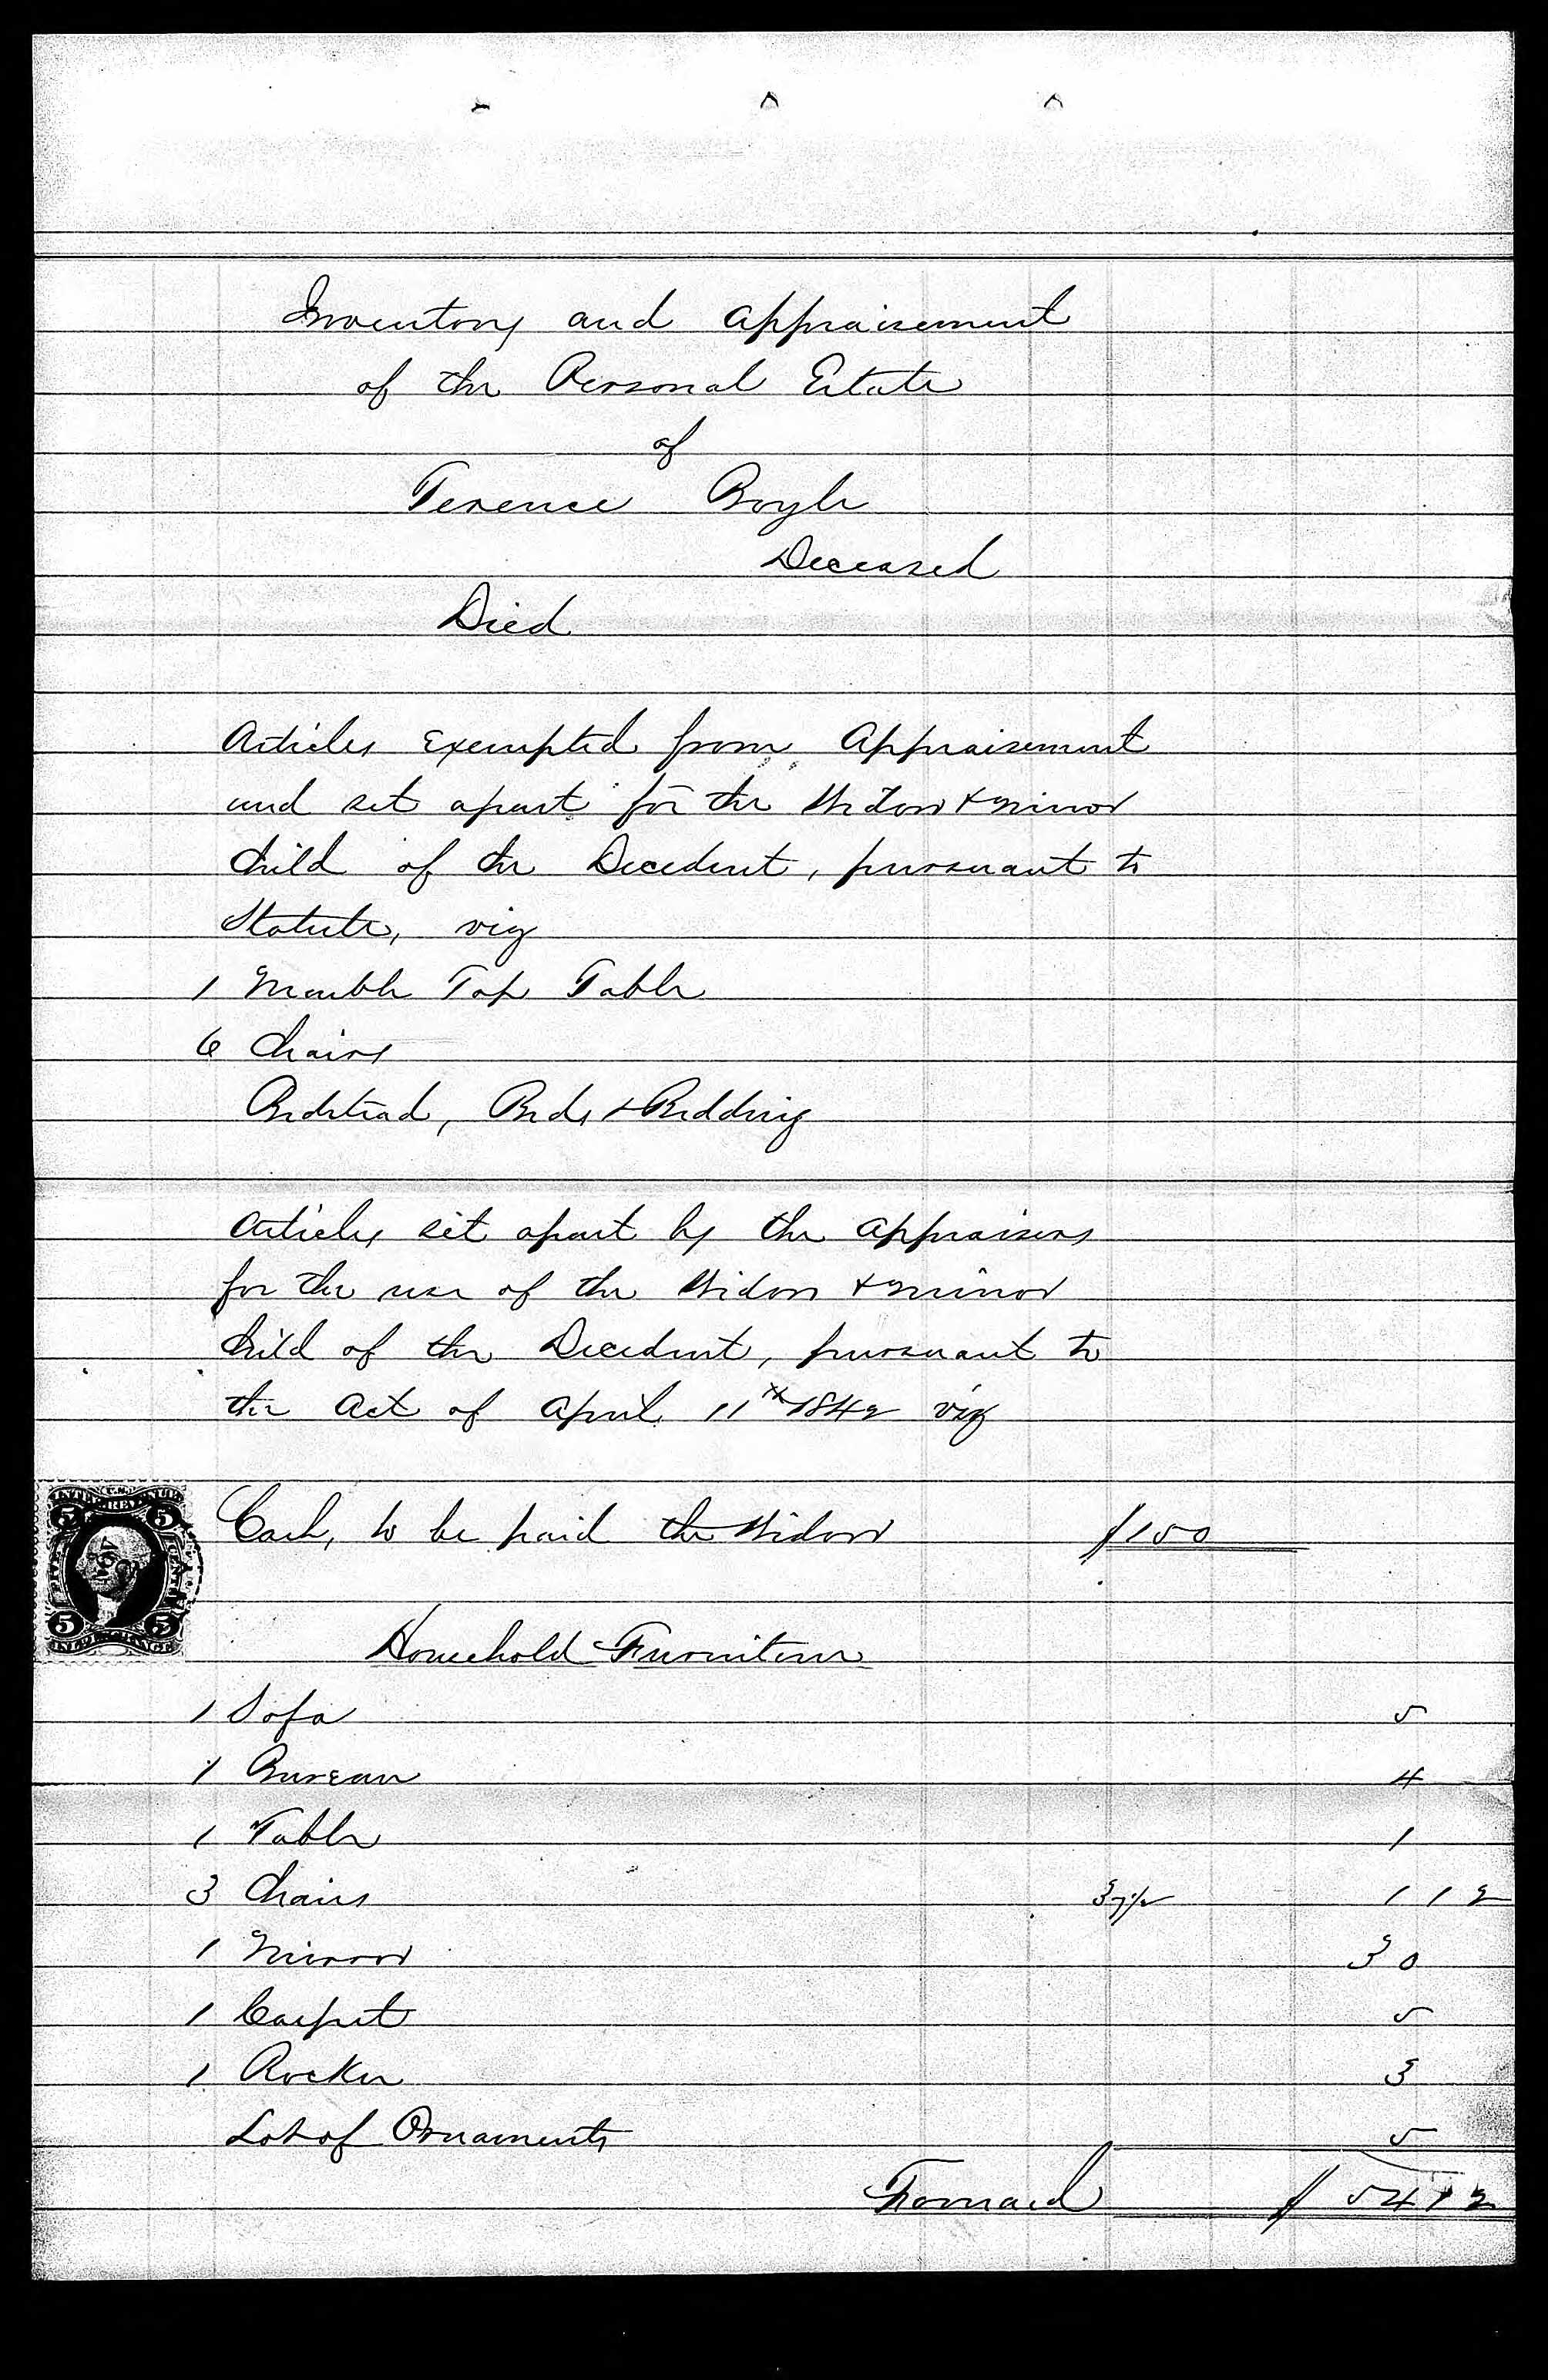 Inventory and Appraisement
of the Personal Estate
of
Terence Boyle
Deceased
Died
Articles Exempted from Appraisement
and set apart for the Widow & minor
child of the Decedent, pursuant to
Statute, viz
1 Marble Top Table
6 Chairs
Bedstead, Beds & Bedding
Articles set apart by the appraisers
for the use of the Widow & minor
child of the Decedent, pursuant to
the Act of April 11th 1842 viz
Cash, to be paid the Widow $150
U.S.
INTER. REVENUE
5 5
FIVE CENTS
5 5
INLD EXCHANGE
Household Furniture
1 Sofa 5
1 Bureau 4
1 Table 1
3 Chairs 37½ 1 12
1 Mirror 30
1 Carpet 5
1 Rocker 3
Lot of Ornaments 5
Forward $ 54 12